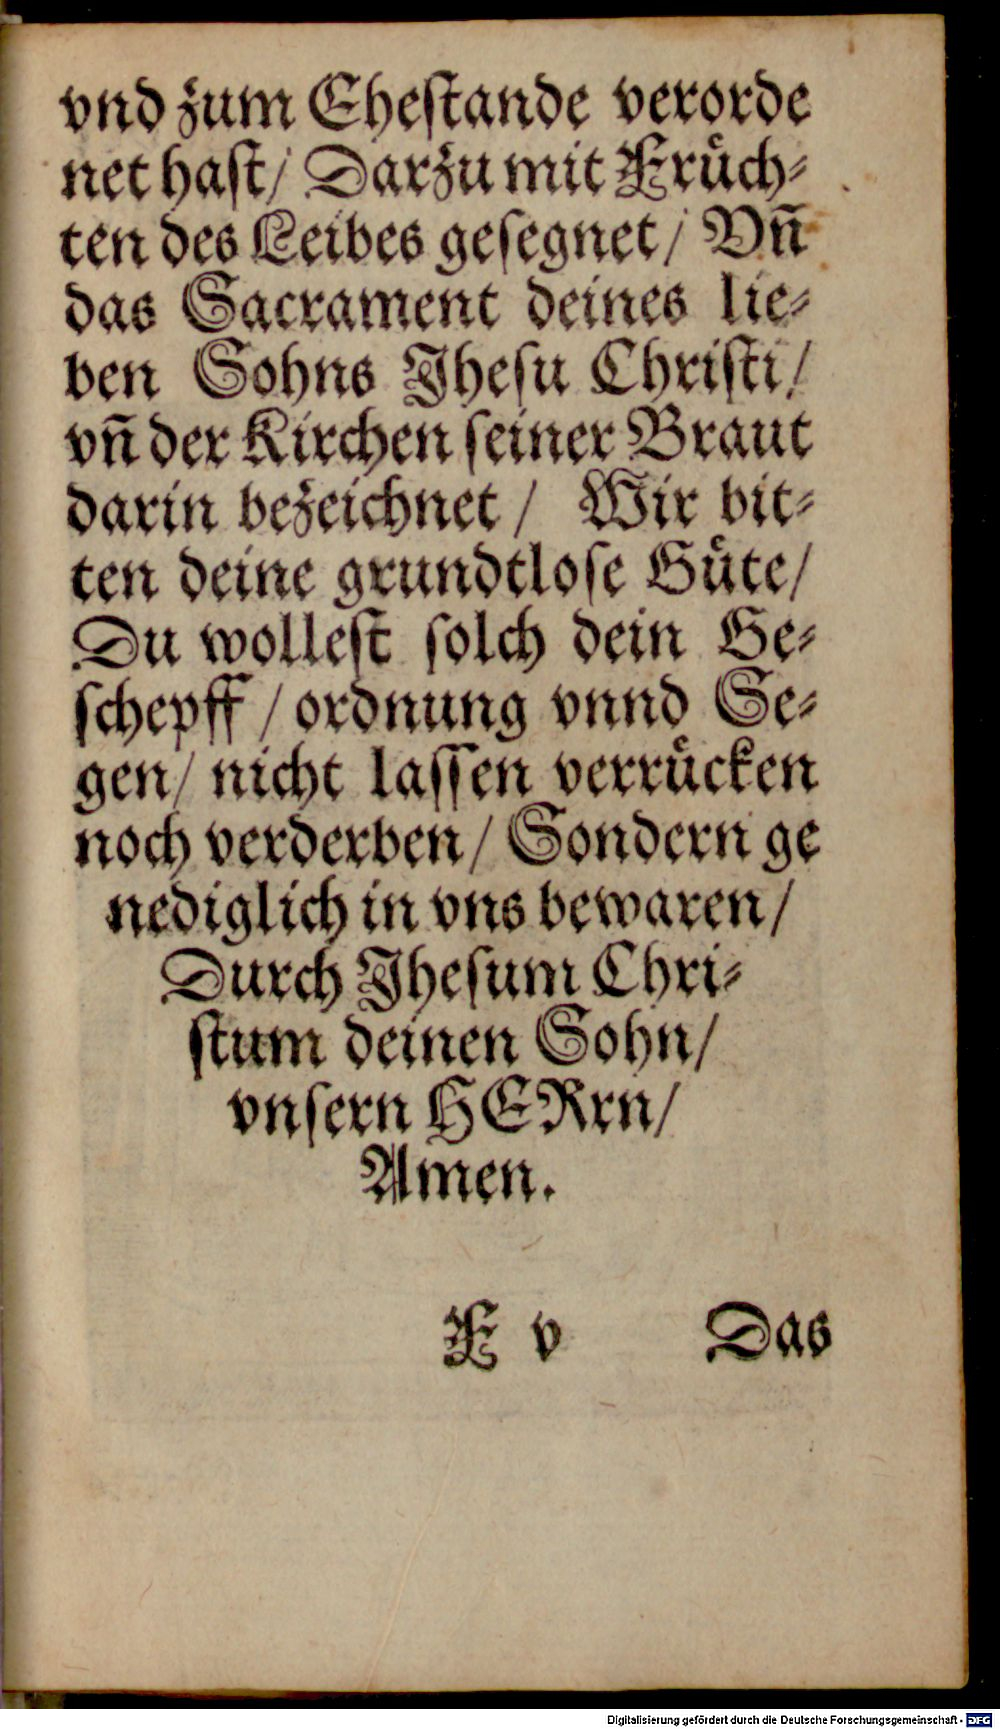 vnd zum Eheſtande verorde
net haſt/ Darzu mit Fruͤch⸗
ten des Leibes geſegnet/ Vn̄
das Sacrament deines lie⸗
ben Sohns Jheſu Chriſti/
vn̄ der Kirchen ſeiner Braut
darin bezeichnet/ Wir bit⸗
ten deine grundtloſe Guͤte/
Du wolleſt ſolch dein Ge⸗
ſchepff/ ordnung vnnd Se⸗
gen/ nicht laſſen verruͤcken
noch verderben/ Sondern ge
nediglich in vns bewaren/
Durch Jheſum Chri⸗
ſtum deinen Sohn/
vnſern HERrn/
Amen.
F v Das
Digitalisierung gefördert durch die Deutsche Forschungsgemeinschaft - DFG